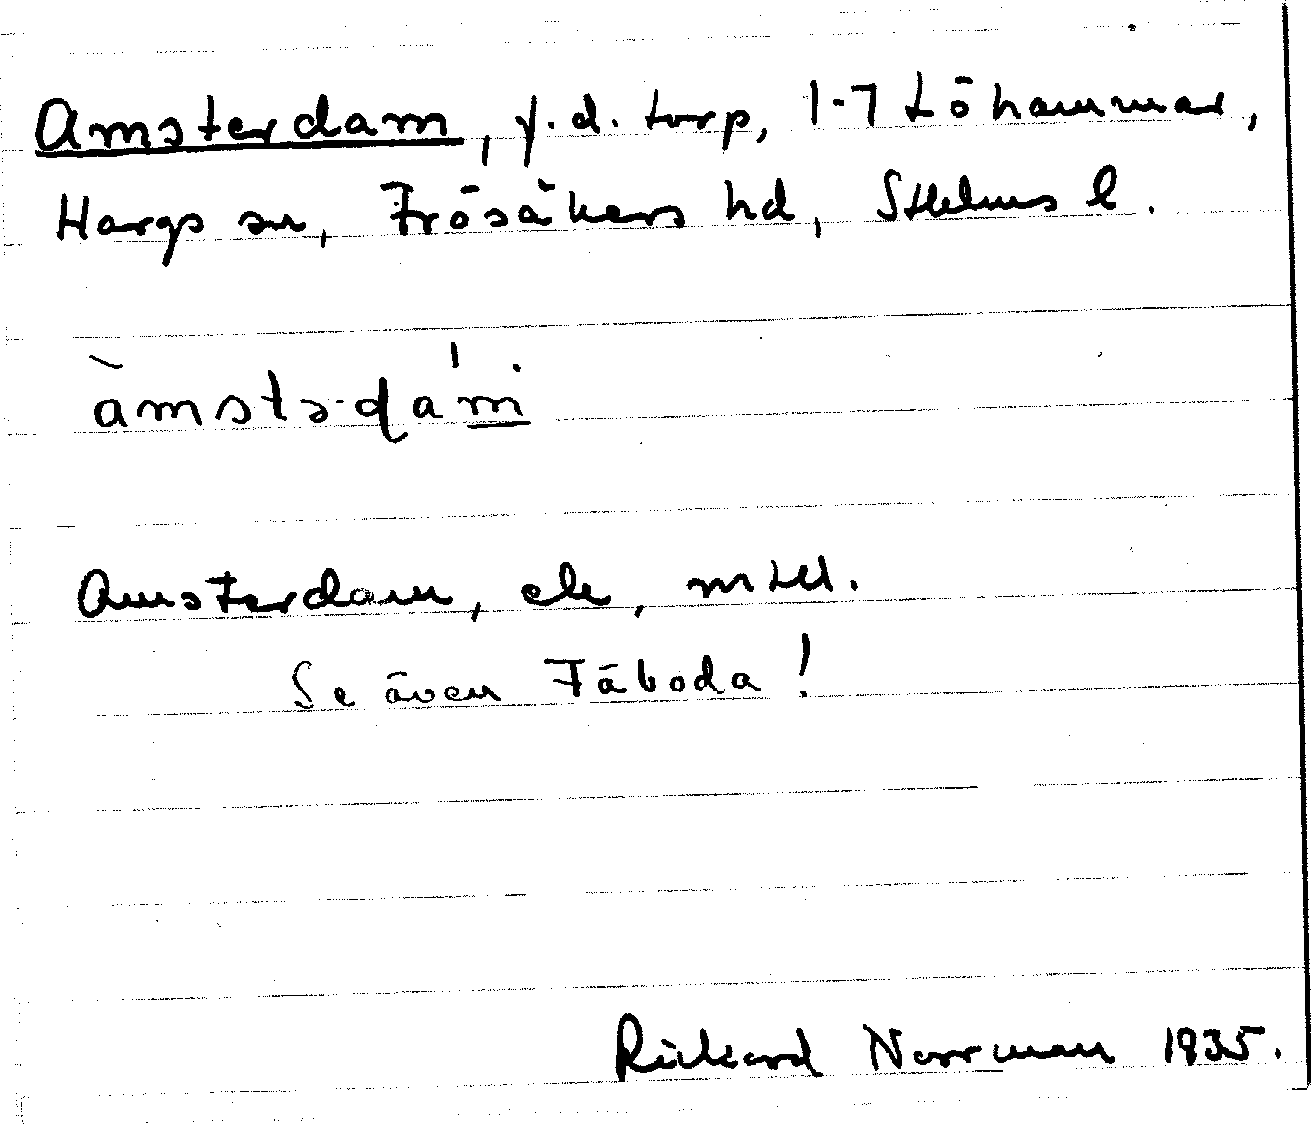 Amsterdam, f.d. torp, 1-7 Löhammar,
Hargs sn, Frösåkers hd, Sthlms l.
àmstə-ɖa'm
Amsterdam, ek, mtbl.
Se även Fäboda!
Rickard Norrman 1935.